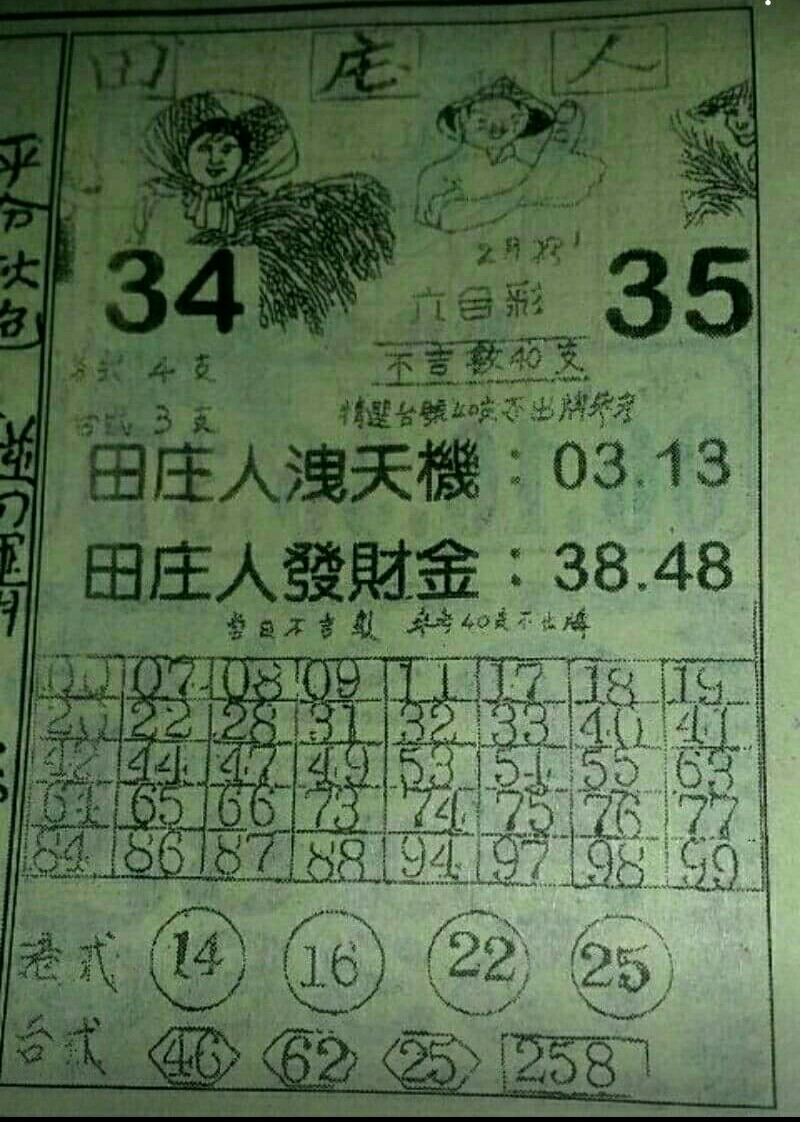 田庄人
34
35
六合彩
不吉數40支
4支
台式 3支
精選台號40支不出牌參考
田庄人洩天機：03.13
田庄人發財金：38.48
當日不吉數 參考40支不出牌
00 07 08 09 11 17 18 19
20 22 28 31 32 33 40 41
42 44 47 49 53 54 55 63
64 65 66 73 74 75 76 77
84 86 87 88 94 97 98 99
港式 14 16 22 25
台式 46 62 25 258
平分秋色